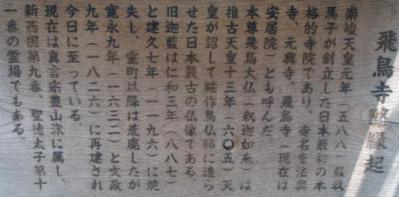 飛鳥寺略縁起
崇峻天皇元年(五八八)蘇我
馬子が創立した日本最初の本
格的寺院であり、寺名を法興
寺、元興寺、飛鳥寺(現在は
安居院)とも呼んだ。
本尊飛鳥大仏(釈迦如来)は
推古天皇十三年(六〇五)天
皇が詔して鞍作鳥仏師に造ら
せた日本最古の仏像である。
旧伽藍は仁和三年(八八七)
と建久七年(一一九六)に焼
失し、室町以降は荒廃したが
寛永九年(一六三二)と文政
九年(一八二六)に再建され
今日に至っている。
現在は真言宗豊山派に属し、
新西国第九番、聖徳太子第十
一番の霊場でもある。